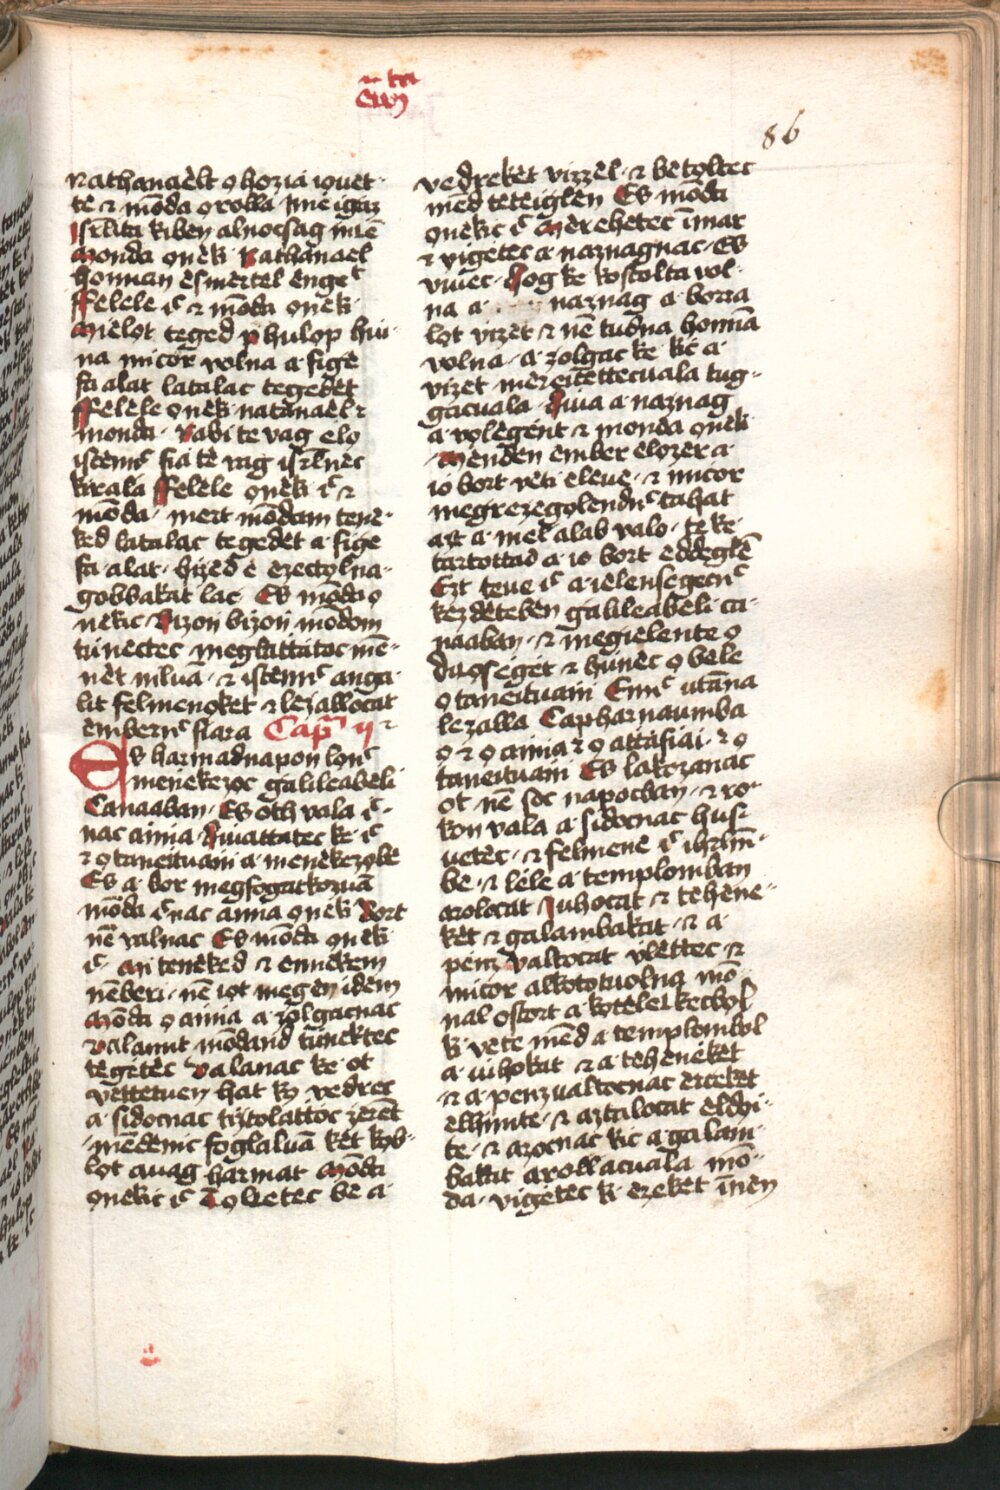 86
nathanaelt o hozia iouet-
te ⁊ mōda o rolla Ime igaz
Isrl̄ita kibeṅ alnocsag niṅc
Monda oneki Nathanael
honnan esmertel engē
Felele ic̄ ⁊ mōda oneki
Mielȯt teged ph̄ulop hiu-
na micor volna a fige
fa alat latalac tegedet
Felele oneki natānael ⁊
monda · Rabi te vag elo
istenn̄c fia te vag isrl̄nec
kirala Felele oneki ic̄ ⁊
mōda · mert mōdam tene-
ked latalac tegedet a fige
fa alat · hized e ezectȯl na-
gobbakat lac · Es mōda o
nekic Bizoń bizoń mōdom
tunectec meglattatoc mē-
ńėt ńiluā · ⁊ istenn̄c anga-
lit felmenȯket ⁊ lezallocat
embern̄c fiara Cap̄m ij
Es harmadnapon lon̄c
menekezȯc galileabeli
Canaaban · Es oth vala ic̄-
nac ańńa Hiuattatec ke ic̄
⁊ o tańeituańi a menekezȯbe
Es a bor megfogatkozuā
mōda ic̄nac ańńa oneki Bort
nē valnac Es mōda oneki
ic̄ · Mi teneked ⁊ ennekem
nēberi · nē iȯt meg en idėm
Mōda o ańńa a zolgacnac
Valamit mōdand tunektec
tegetec Valanac ke ot
vettetuen hat kȯ vedrec
a sidocnac tiztolattoc zerėt
mēdenic foglaluā ket kȯb-
lȯt auag harmat Mōda
onekic ic̄ Toltetec be a
vedreket vizzel · ⁊ betoltec
mėd teteiglen Es mōda
onekic ic̄ Merehetec īmar
⁊ vigetec a naznagnac · Es
viuec · Hog ke kostolta vol-
na a naznag a borra
lȯt vizet ⁊ nē tudna honnā
volna · a zolgac ke kic a
vizet mereitettecuala tug-
gacuala · Hiua a naznag
a vȯlegent ⁊ monda oneki
Menden ember elozer a
io bort veti eleue · ⁊ micor
megrezegȯlendn̄c tahat
azt a mel alab valo · te ke
tartottad a io bort eddeglē
Ezt teue ic̄ a ielensegecn̄c
kezdeteben galileabeli ca-
naaban · ⁊ megielente o
dicoseget ⁊ hunec o bele
o tańeituańi Enn̄c vtāna
lezalla Capharnaumba
o ⁊ o ańńa ⁊ o att́afiai · ⁊ o
tańeituańi Es lakozanac
ot · nē soc napocban · ⁊ kȯ-
kȯn vala a sidocnac husi-
uetec · ⁊ felmene ic̄ ihrl̄m-
be · ⁊ lele a templomban
arolocat Iuhocat ⁊ tehene-
ket ⁊ galambakat · ⁊ a
penz valtocat vlėttec ⁊
micor alkototuolna mo-
nal ostort a kotelelkecbȯl
ki vete mėd a templombol
a iuhokat ⁊ a teheneket
⁊ a penzualtocnac erceket
elhinte · ⁊ aztalocat eldȯi-
te · ⁊ azocnac kic a galam-
bakat arollacuala mō-
da · vigetec ki ezeket īnen